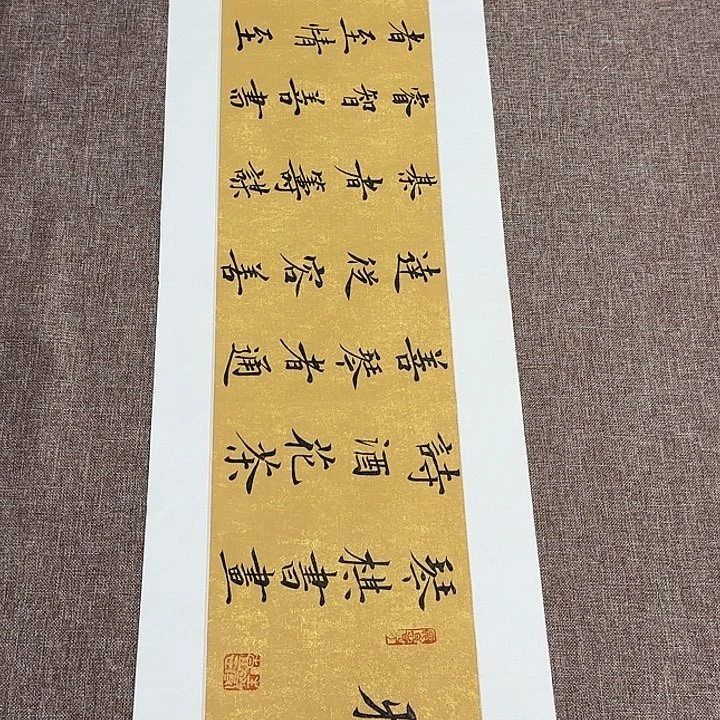 琴棋書畫
詩酒花茶
善琴者通
達從容善
棊者籌謀
睿智善書
者至情至